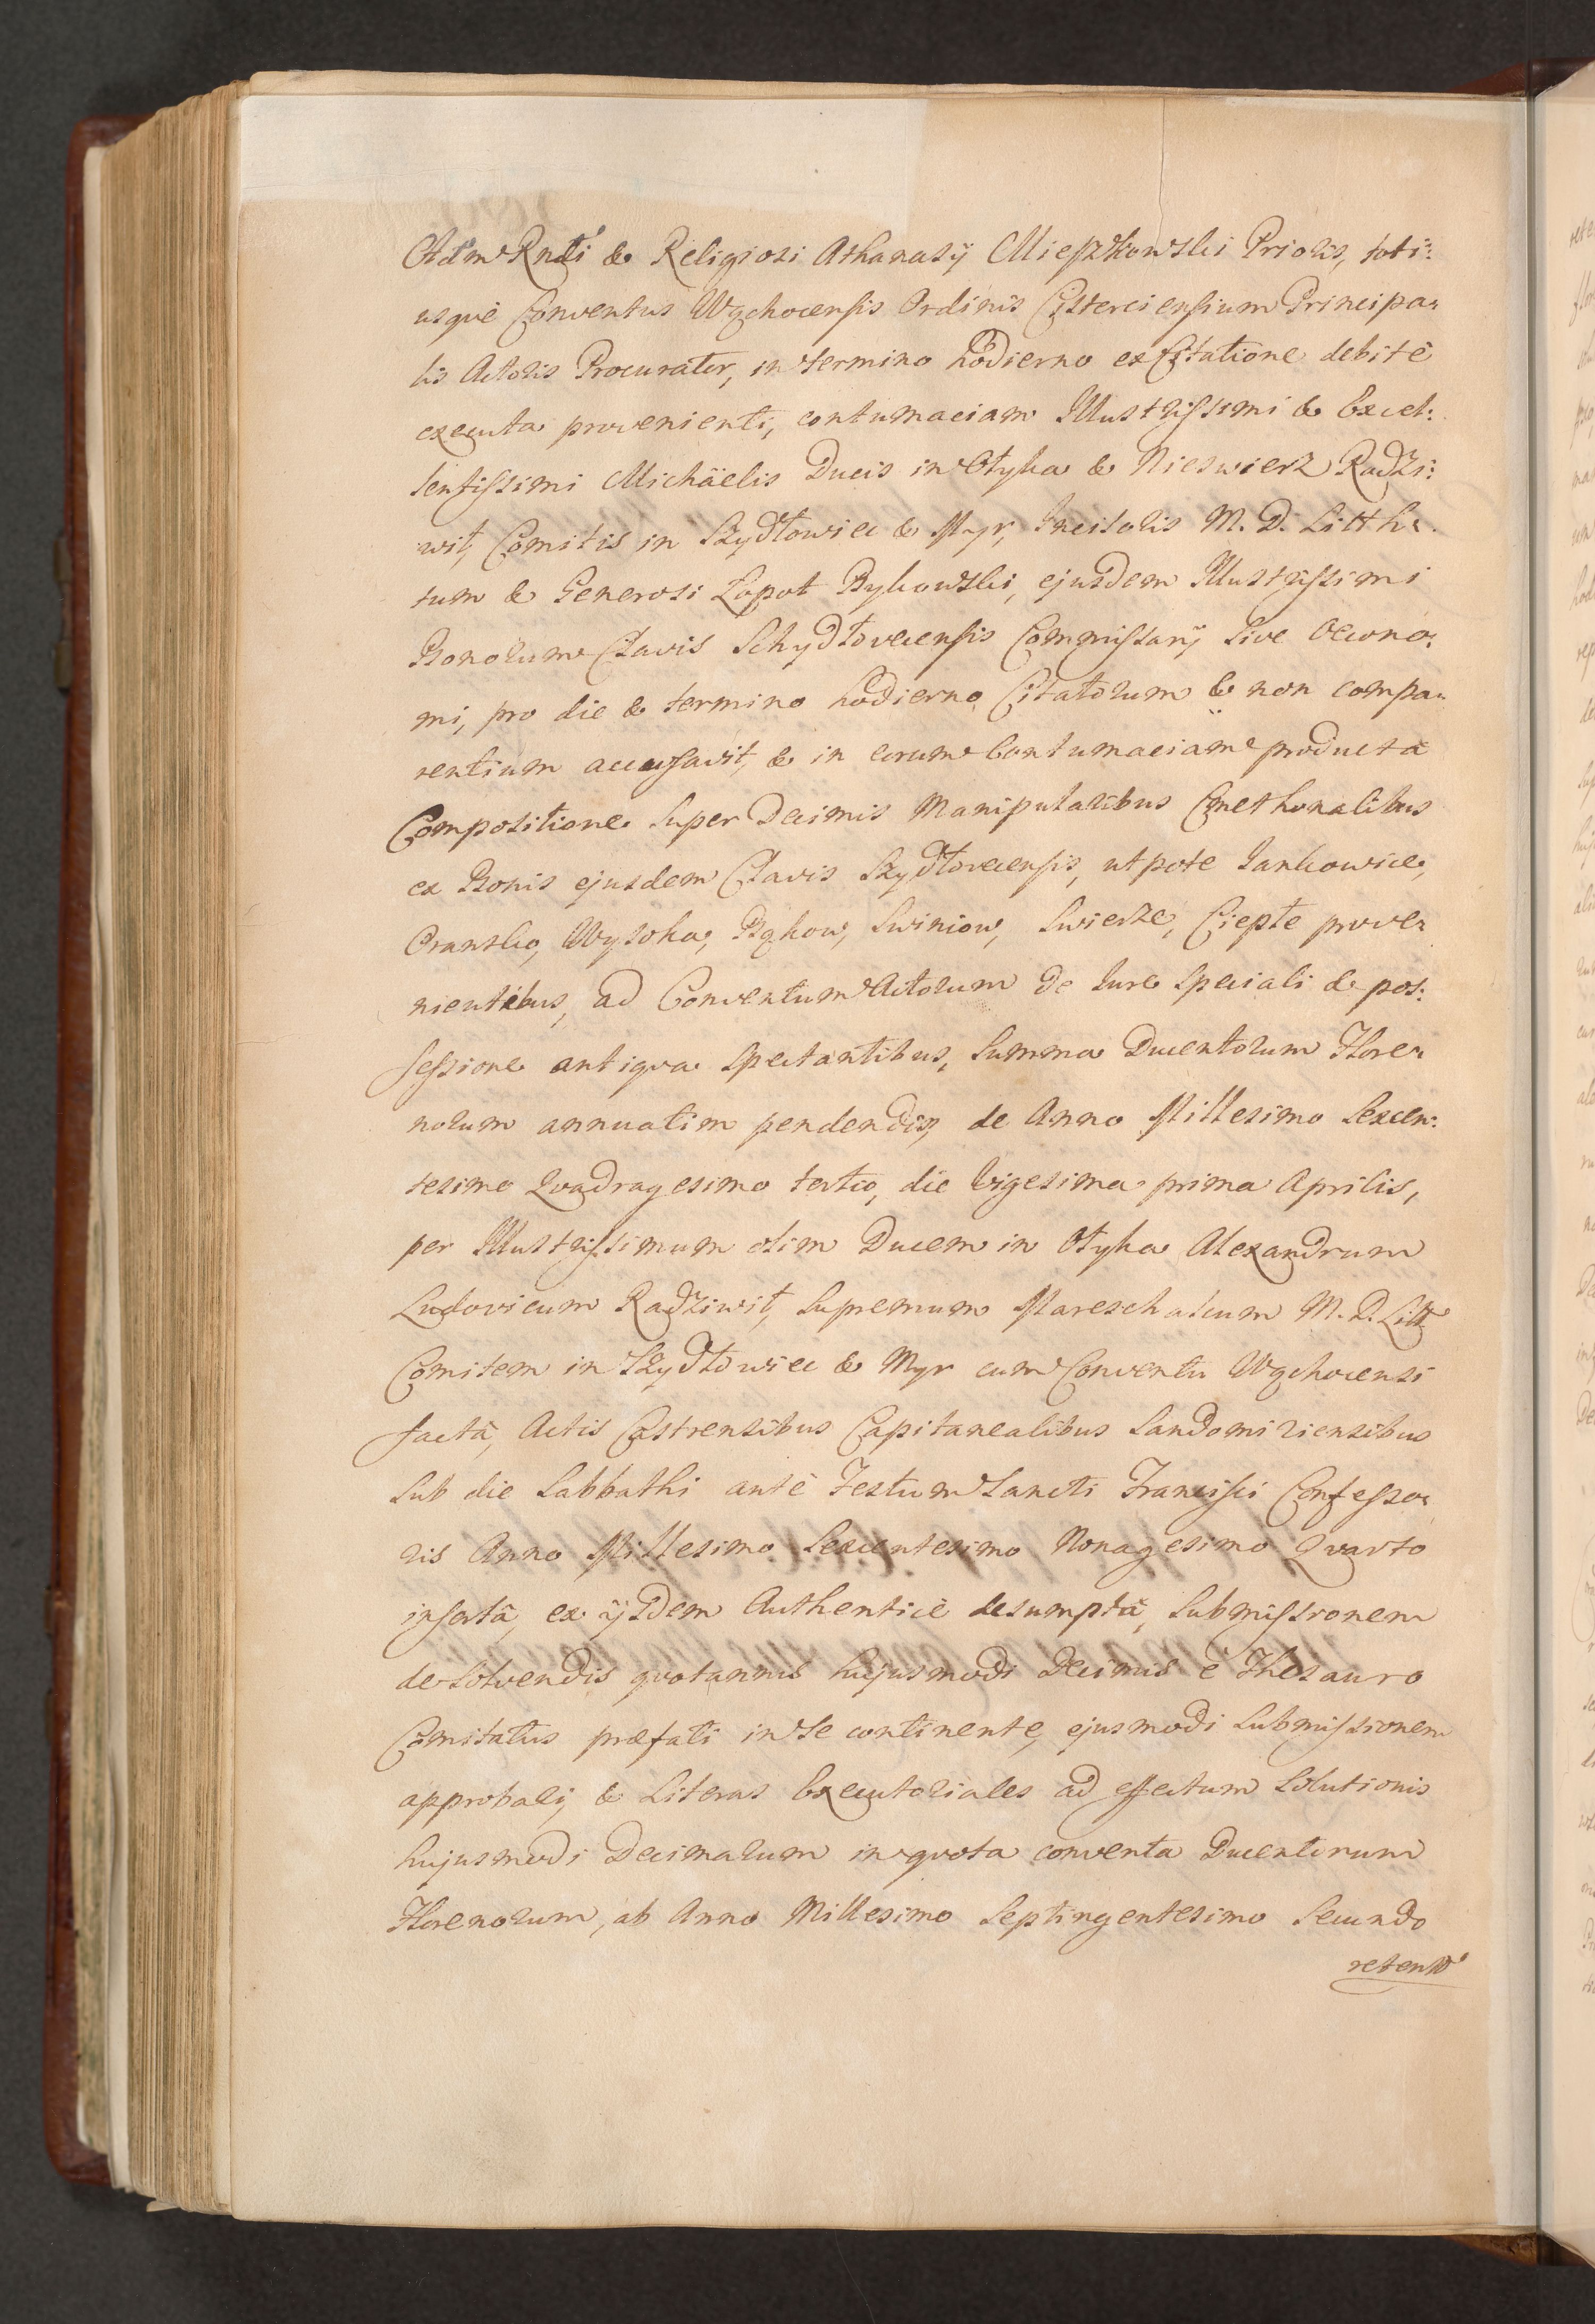 Adm Rndi & Religiosi Athanasÿ Mieszkowski Prioris, toti:
usqve Conventus Wąchocensis Ordinis Cisterciensium Principa:
lis Actoris Procurator, in termino hodierno ex Citatione debitè
executa provenienti, contumaciam Illustrissimi & Excel:
lentissimi Michäelis Ducis in Ołyka & Nieswierz Radzi:
wił, Comitis in Szydłowiec & Myr, Incisoris M. D. Litth:
tum & Generosi Łapot Bykowski, ejusdem Illustrissimi
Bonorum Clavis Schydłoveciensis Commissarÿ sive Oecono:
mi, pro die & termino hodierno Citatorum & non compa:
rentium accusavit, & in eorum Contumaciam producta
Compositione super Decimis Manipularibus Cmethonalibus
ex Bonis ejusdem Clavis Szydłoveciensis, utpote Jankowice,
Oransko, Wysoka, Bąkow, Swiniow, Swierże, Ciepłe prove:
nientibus, ad Conventum Actorum de Jure speciali & pos:
sessione antiqva spectantibus, summa Ducentorum Flore:
norum annuatim pendendis, de Anno Millesimo Sexcen:
tesimo Qvadragesimo tertio, die Vigesima prima Aprilis,
per Illustrissimum olim Ducem in Ołyka Alexandrum
Ludovicum Radziwił, Supremum Mareschalcum M. D. Litt
Comitem in Szydłowiec & Myr cum Conventu Wąchocensi
factâ, Actis Castrensibus Capitanealibus Sandomiriensibus
sub die Sabbathi antè Festum Sancti Francisci Confesso:
ris Anno Millesimo Sexcentesimo Nonagesimo Qvarto
insertâ, ex ÿsdem Authenticè desumptâ, submissionem
de solvendis qvotannis hujusmodi Decimis è Thesauro
Comitatus præfati in se continente, ejusmodi submissionem
approbari, & Literas Executoriales ad effectum solutionis
hujusmodi Decimarum in qvota conventa Ducentorum
Florenorum, ab Anno Millesimo Septingentesimo Secundo